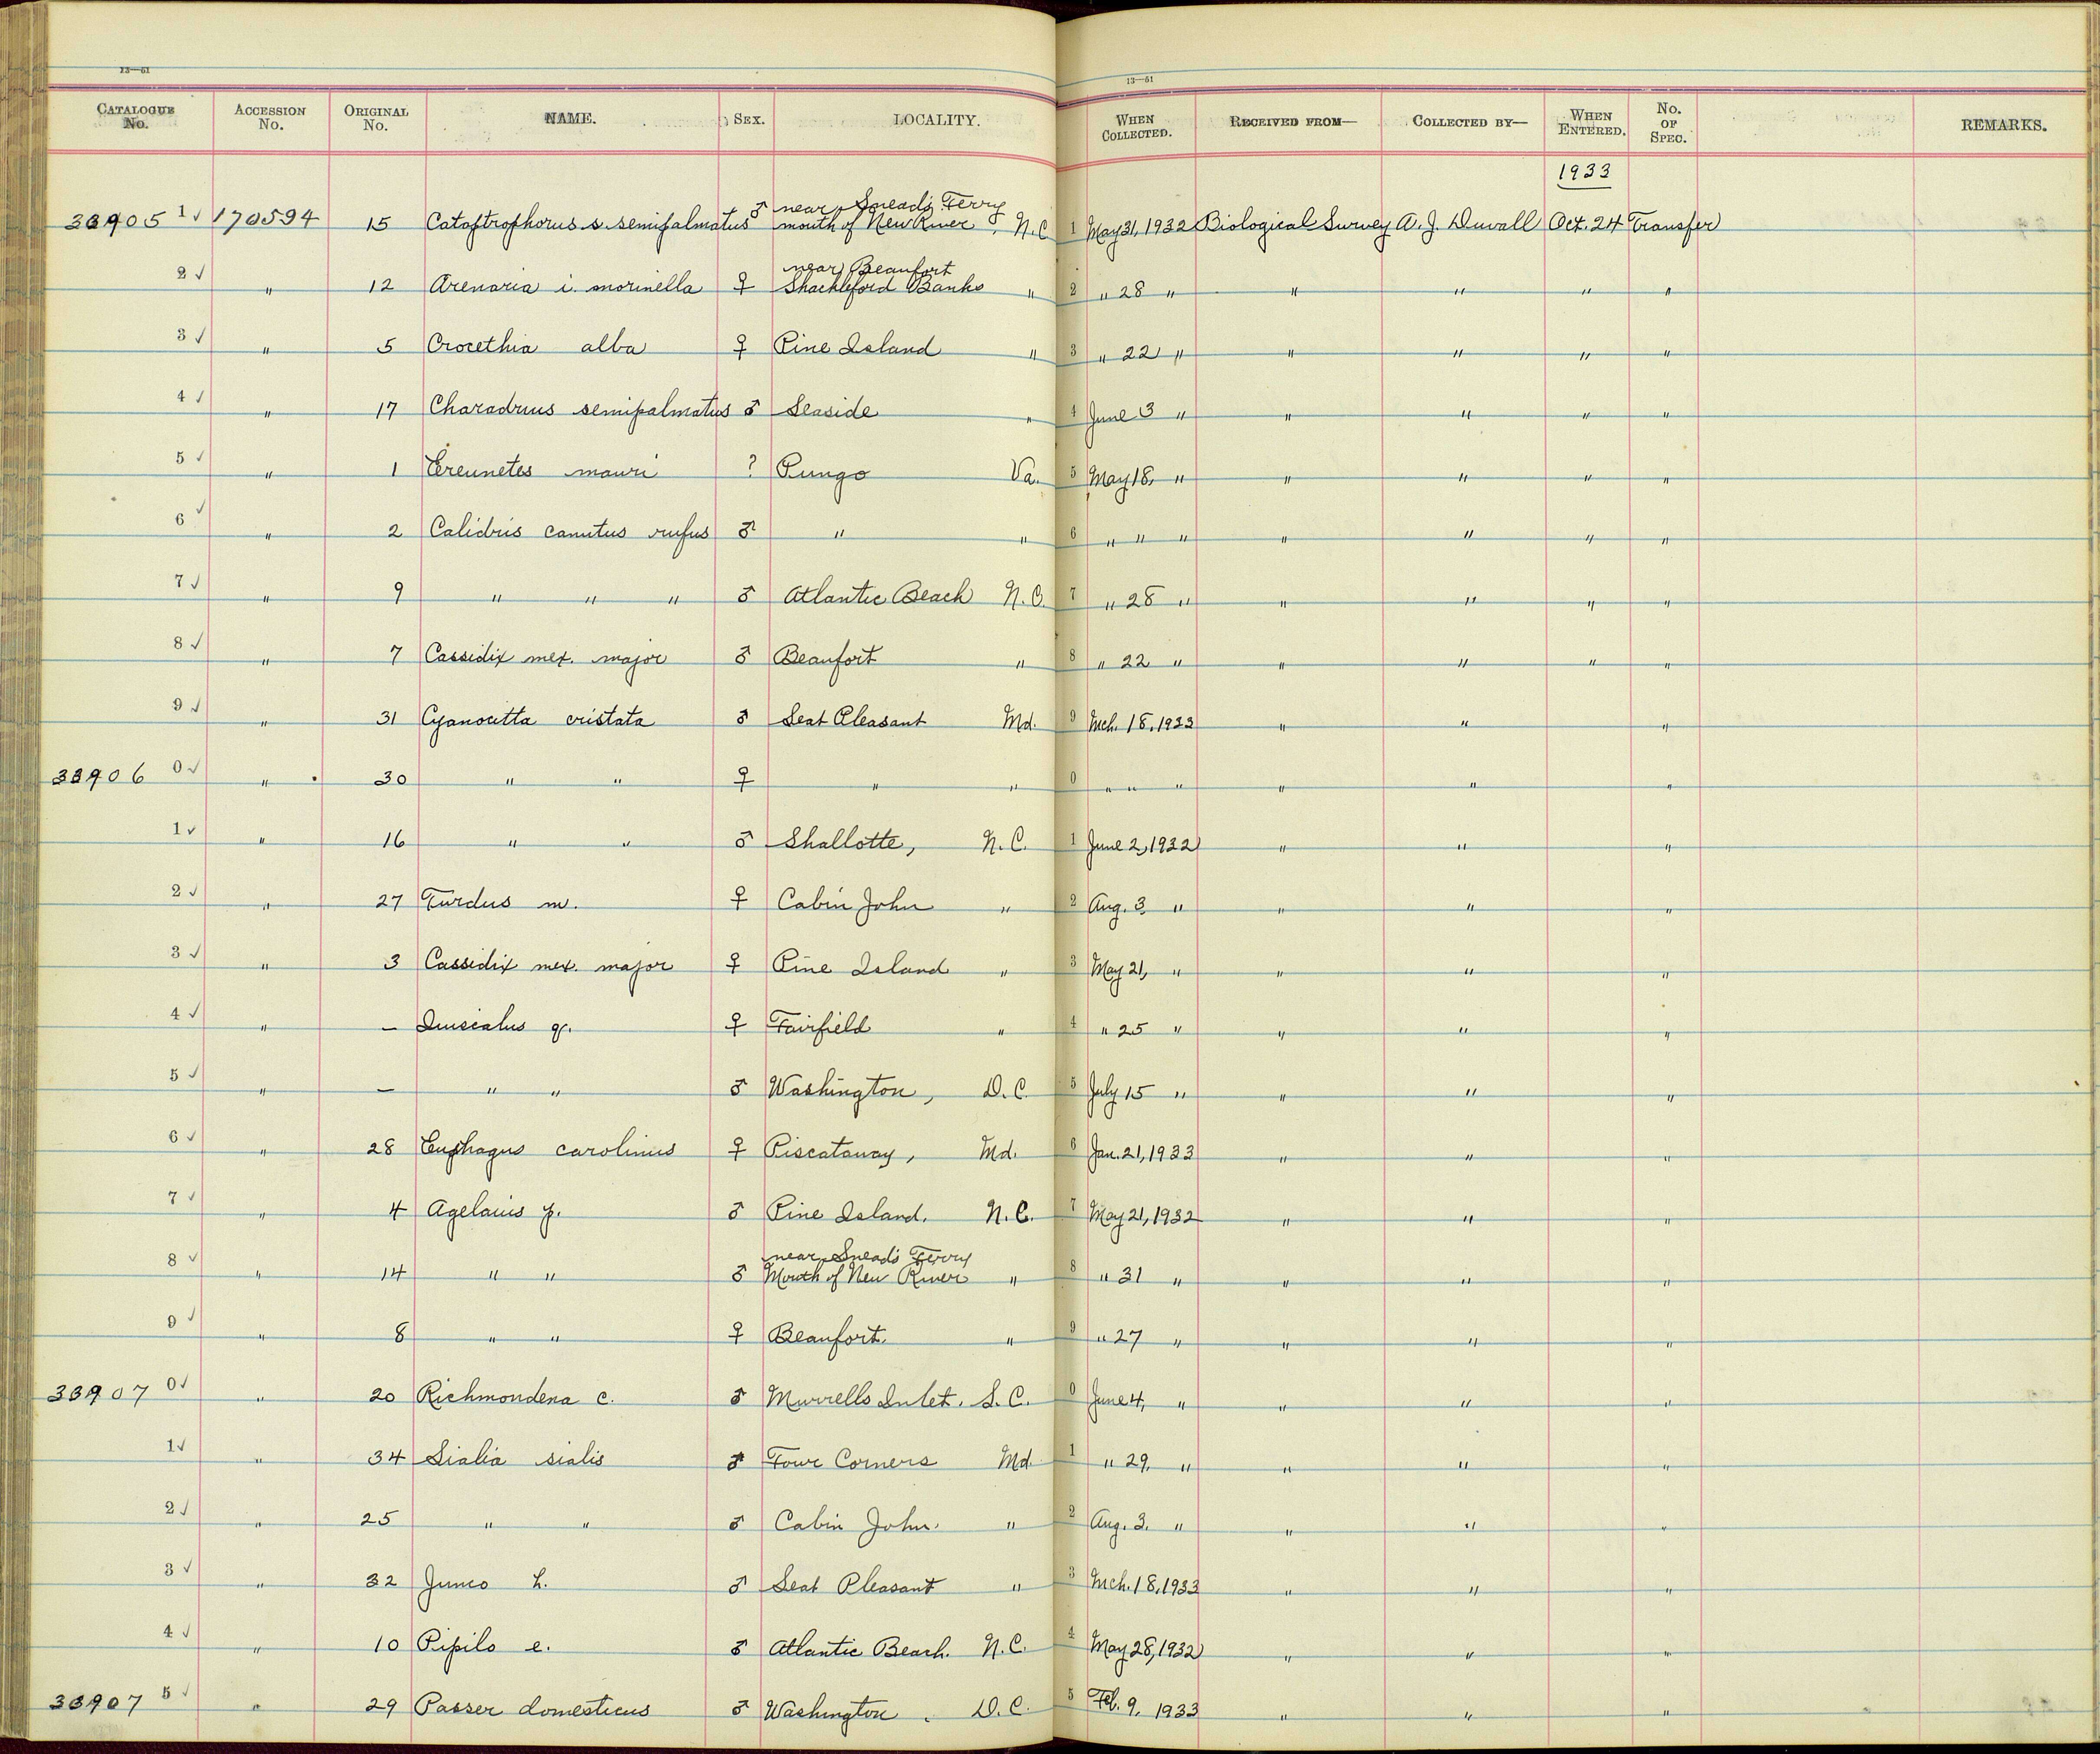 13—51
13—51
CATALOGUE No. ACCESSION No. ORIGINAL No. NAME. SEX. LOCALITY. WHEN COLLECTED. RECEIVED FROM— COLLECTED BY— WHEN ENTERED. No. OF SPEC. REMARKS.
1933
near Snead's Ferry
33905 1 ✓ 170594 15 Catoptrophorus s. semipalmatus ♂ mouth of New River, N.C. 1 May 31, 1932 Biological Survey A. J. Duvall Oct. 24 Transfer
near Beaufort
2 ✓ " 12 Arenaria i. morinella ♀ Shackleford Banks " 2 " 28 " " " " "
3 ✓ " 5 Crocethia alba ♀ Pine Island " 3 " 22 " " " " "
4 ✓ " 17 Charadrius semipalmatus ♂ Seaside " 4 June 3 " " " " "
5 ✓ " 1 Ereunetes mauri ? Pungo Va. 5 May 18, " " " " "
6 ✓ " 2 Calidris canutus rufus ♂ " " 6 " " " " " " "
7 ✓ " 9 " " " ♂ Atlantic Beach N.C. 7 " 28 " " " " "
8 ✓ " 7 Cassidix mex. major ♂ Beaufort " 8 " 22 " " " " "
9 ✓ " 31 Cyanocitta cristata ♂ Seat Pleasant Md. 9 Mch. 18, 1933 " " "
33906 0 ✓ " 30 " " ♀ " " 0 " " " " " "
1 ✓ " 16 " " ♂ Shallotte, N.C. 1 June 2, 1932 " " "
2 ✓ " 27 Turdus m. ♀ Cabin John " 2 Aug. 3 " " " "
3 ✓ " 3 Cassidix mex. major ♀ Pine Island " 3 May 21, " " " "
4 ✓ " — Quiscalus q. ♀ Fairfield " 4 " 25 " " " "
5 ✓ " — " " ♂ Washington, D.C. 5 July 15 " " " "
6 ✓ " 28 Euphagus carolinus ♀ Piscataway, Md. 6 Jan. 21, 1933 " " "
7 ✓ " 4 Agelaius p. ♂ Pine Island. N.C. 7 May 21, 1932 " " "
near Snead's Ferry
8 ✓ " 14 " " ♂ Mouth of New River " 8 " 31 " " " "
9 ✓ " 8 " " ♀ Beaufort. " 9 " 27 " " " "
33907 0 ✓ " 20 Richmondena c. ♂ Murrells Inlet. S.C. 0 June 4, " " " "
1 ✓ " 34 Sialia sialis ♂ Four Corners Md. 1 " 29, " " " "
2 ✓ " 25 " " ♂ Cabin John. " 2 Aug. 3. " " " "
3 ✓ " 32 Junco h. ♂ Seat Pleasant " 3 Mch. 18, 1933 " " "
4 ✓ " 10 Pipilo e. ♂ Atlantic Beach. N.C. 4 May 28, 1932 " " "
33907 5 ✓ " 29 Passer domesticus ♂ Washington. D.C. 5 Feb. 9, 1933 " " "